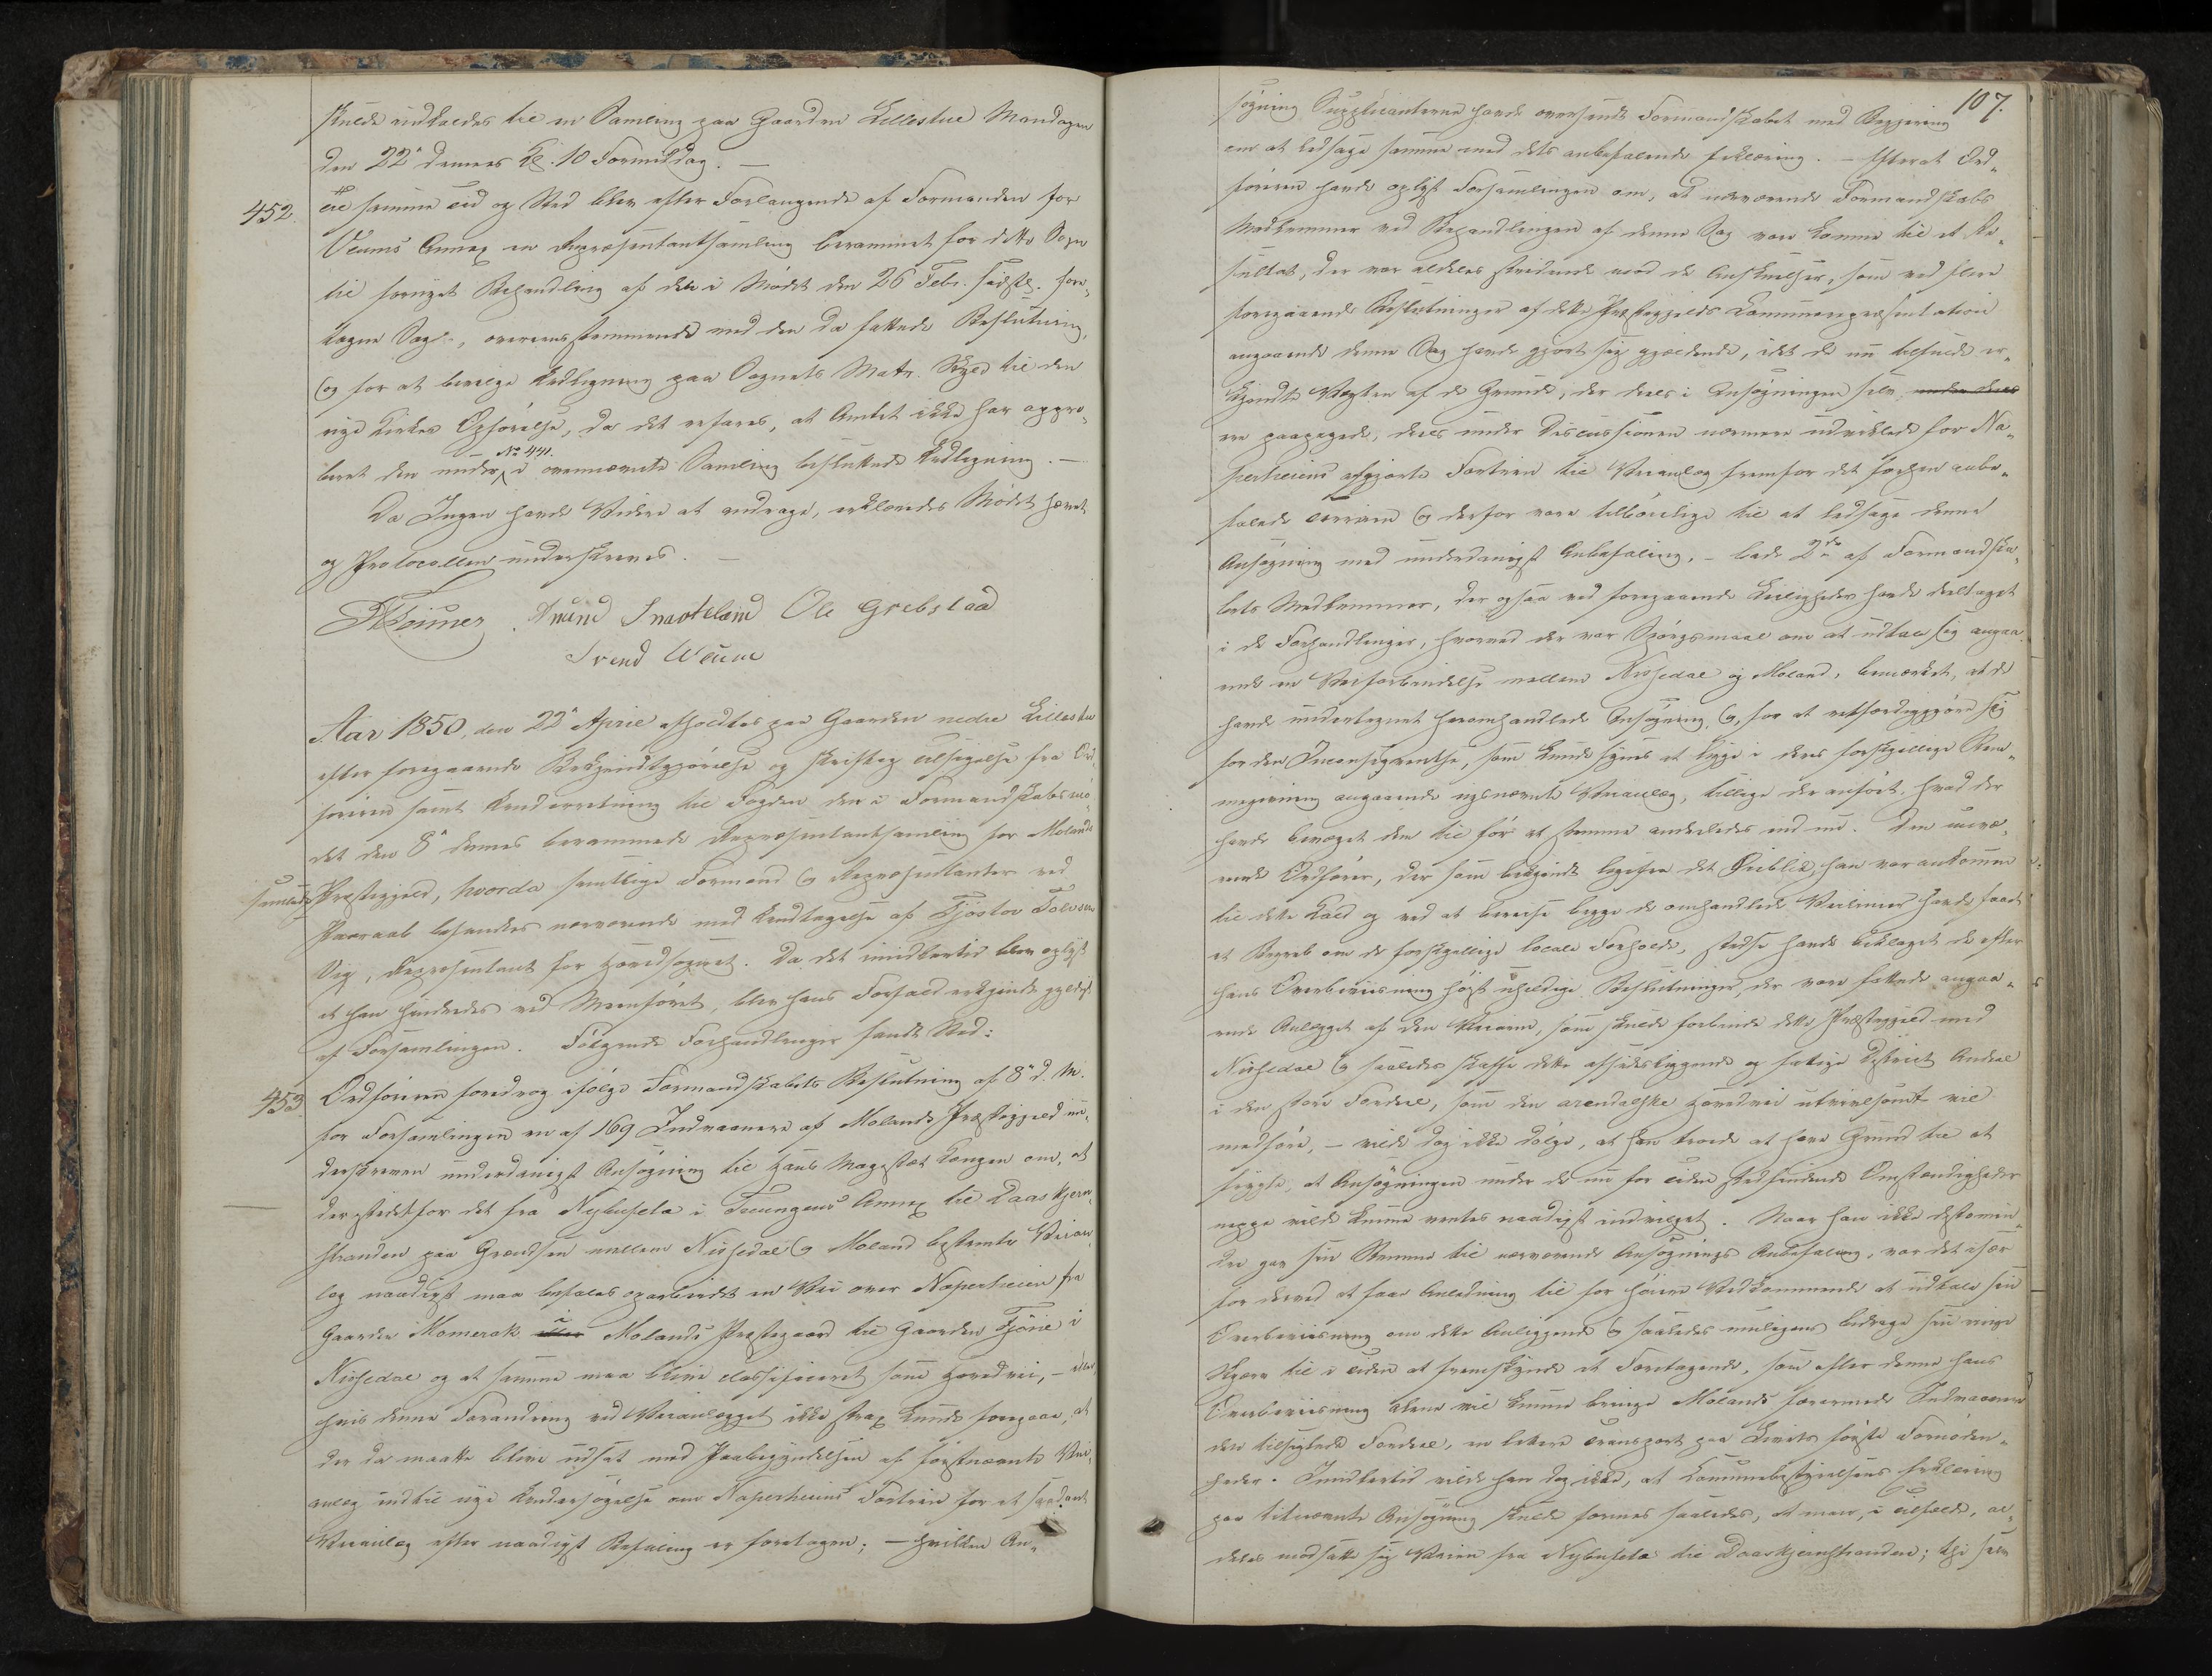 skulde indkaldes til en Samling paa Gaarden Lillestue Mandagen
den 22de dennes Kl. 10 Formiddag. —
452. Til samme Tid og Sted blev efter Forlangende af Formanden for
Veums Annex en Repræsentantsamling berammet for dette Sogn
til fornyet Behandling af den i Mødet den 26 Febr. sidstl. fore-
tagne Sag, overeensstemmende med den da fattede Beslutning,
og for at bevilge Udligning paa Sognets Matr. Skyld til den
nye Kirkes Opførelse, da det erfares, at Amtet ikke har appro-
beret den under No 441. i ovennævnte Samling besluttede Udligning. —
Da Ingen havde Videre at andrage, erklæredes Mødet hævet
og Protocollen underskreves. —
Anund Snarteland Ole Grebstad
Svend Weum
Aar 1850, den 22de April afholdtes paa Gaarden nedre Lillestue
efter foregaaende Bekjendtgjørelse og skriftlig Tilsigelse fra Ord-
føreren samt Underretning til Fogden den i Formandskabsmø-
det den 8de dennes berammede Repræsentantsamling for Molands
samlede Præstegjeld, hvorda samtlige Formænd og Repræsentanter ved
Paaraab befandtes nærværende med Undtagelse af Tjøstov Tolvsen
Vig, Repræsentant for Hovedsognet. Da det imidlertid blev oplyst
at han hindredes ved Meenføret, blev hans Forfald erkjendt gyldigt
af Forsamlingen. Følgende Forhandlinger fandt Sted:
453. Ordføreren foredrog ifølge Formandskabets Beslutning af 8de d. M.
for Forsamlingen en af 169 Indvaanere af Molands Præstegjeld un-
derskreven underdanigst Ansøgning til Hans Majestæt Kongen om, at
der istedetfor det fra Nybufeta i Treungens Annex til Daaskjern-
stranden paa Grændsen mellem Nissedal og Moland bestemte Veian-
læg naadigst maa befales oparbeidet en Vei over Naperheien fra
Gaarden Momerak i Molands Præstegaard til Gaarden Fjøne i
Nissedal og at samme maa blive classificeret som Hovedvei, — eller,
hvis denne Forandring ved Veianlægget ikke strax kunde foregaae, at
der da maatte blive udsat med Paabegyndelsen af førstnævnte Vei-
anlæg indtil nye Undersøgelse om Naperheiens Fortrin for et saadant
Veianlæg efter naadigst Befaling er foretagen; — hvilken An-
107.
søgning Supplicanterne havde oversendt Formandskabet med Begjering
om at ledsage samme med dets anbefalende Erklæring. — Efterat Ord-
føreren havde oplyst Forsamlingen om, at nærværende Formandskabs
Medlemmer ved Behandlingen af denne Sag vare komne til et Re-
sultat, der var aldeles stridende mod de Anskuelser, som ved flere
foregaaende Beslutninger af dette Præstegjelds Communerepræsentation
angaaende denne Sag havde gjort sig gjældende, idet de nu tilfulde er-
kjendte Vægten af de Grunde, der deels i Ansøgningen selv, under deres
ere paapegede, deels under Discussionen nærmere udviklede for Na-
perheiens afgjorte Fortrin til Veianlæg fremfor det forhen anbe-
falede Terrain og derfor vare tilbøielige til at ledsage denne
Ansøgning med underdanigst Anbefaling, — bade 2de af Formandska-
bets Medlemmer, der ogsaa ved foregaaende Leiligheder havde deeltaget
i de Forhandlinger, hvorved der var Spørgsmaal om at udtale sig angaa-
ende en Veiforbindelse mellem Nissedal og Moland, bemærket, at de
havde undertegnet heromhandlede Ansøgning, og, for at retfærdiggjøre sig
for den Inconsequentse, som kunde synes at ligge i deres forskjellige Stem-
megivning angaaende nysnævnte Veianlæg, tillige der anført, hvad der
havde bevæget dem til før at stemme anderledes end nu. Den nuvæ-
rende Ordfører, der som bekjendt ligefra det Øieblik, han var ankommen
til dette Kald og ved at bereise begge de omhandlede Veilinier havde faaet
et Begreb om de forskjellige locale Forholde, stedse havde beklaget de efter
hans Overbeviisning høist uheldige Beslutninger, der vare fattede angaa-
ende Anlægget af den Veiarm, som skulde forbinde dette Præstegjeld med
Nissedal og saaledes skaffe dette afsidesliggende og fattige District Andeel
i den store Fordeel, som den arendalske Hovedvei utvivlsomt vil
medføre, — vilde dog ikke dølge, at han troede at have Grund til at
frygte, at Ansøgningen under de nu for Tiden stedfindende Omstændigheder
neppe vilde kunne ventes naadigst indvilget. Naar han ikke destomin-
dre gav sin Stemme til nærværende Ansøgnings Anbefaling, var det især
for derved at faae Anledning til for høiere Vedkommende at udtale sin
Overbeviisning om dette Anliggende og saaledes muligens bidrage sin ringe
Skjerv til i Tiden at fremskynde et Foretagende, som efter denne hans
Overbeviisning alene vil kunne bringe Molands forarmede Indvaanere
den tilsigtede Fordeel, en lettere Transport paa Livets første Fornøden-
heder. Imidlertid vilde han dog ikke, at Communebestyrelsens Erklæring
paa bemeldte Ansøgning skulde formes saaledes, at man, i Tilfælde, al-
deles modsatte sig Veien fra Nybufeta til Daaskjernstranden; thi selv